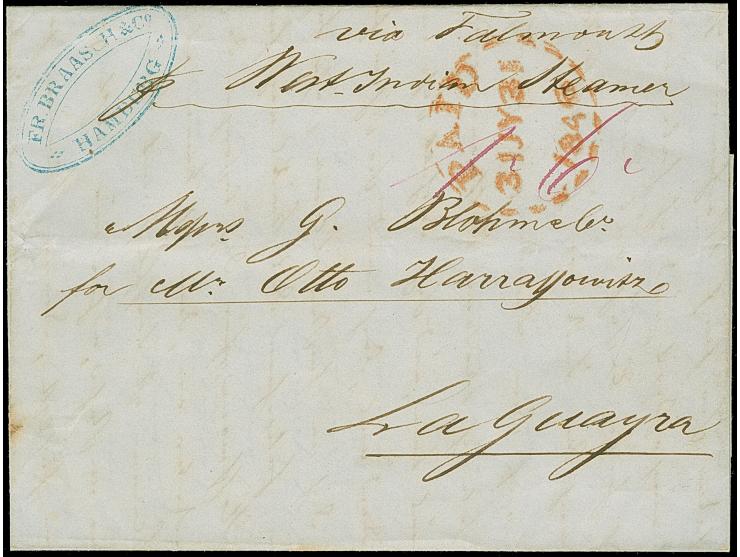 FR. BRAASCH & Co
HAMBURG
via Falmouth
pr West-Indian Steamer
PAID
31 JY 31
184
1/6
Messrs G. Blohm & Co.
for Mr. Otto Harrassowitz
La Guayra